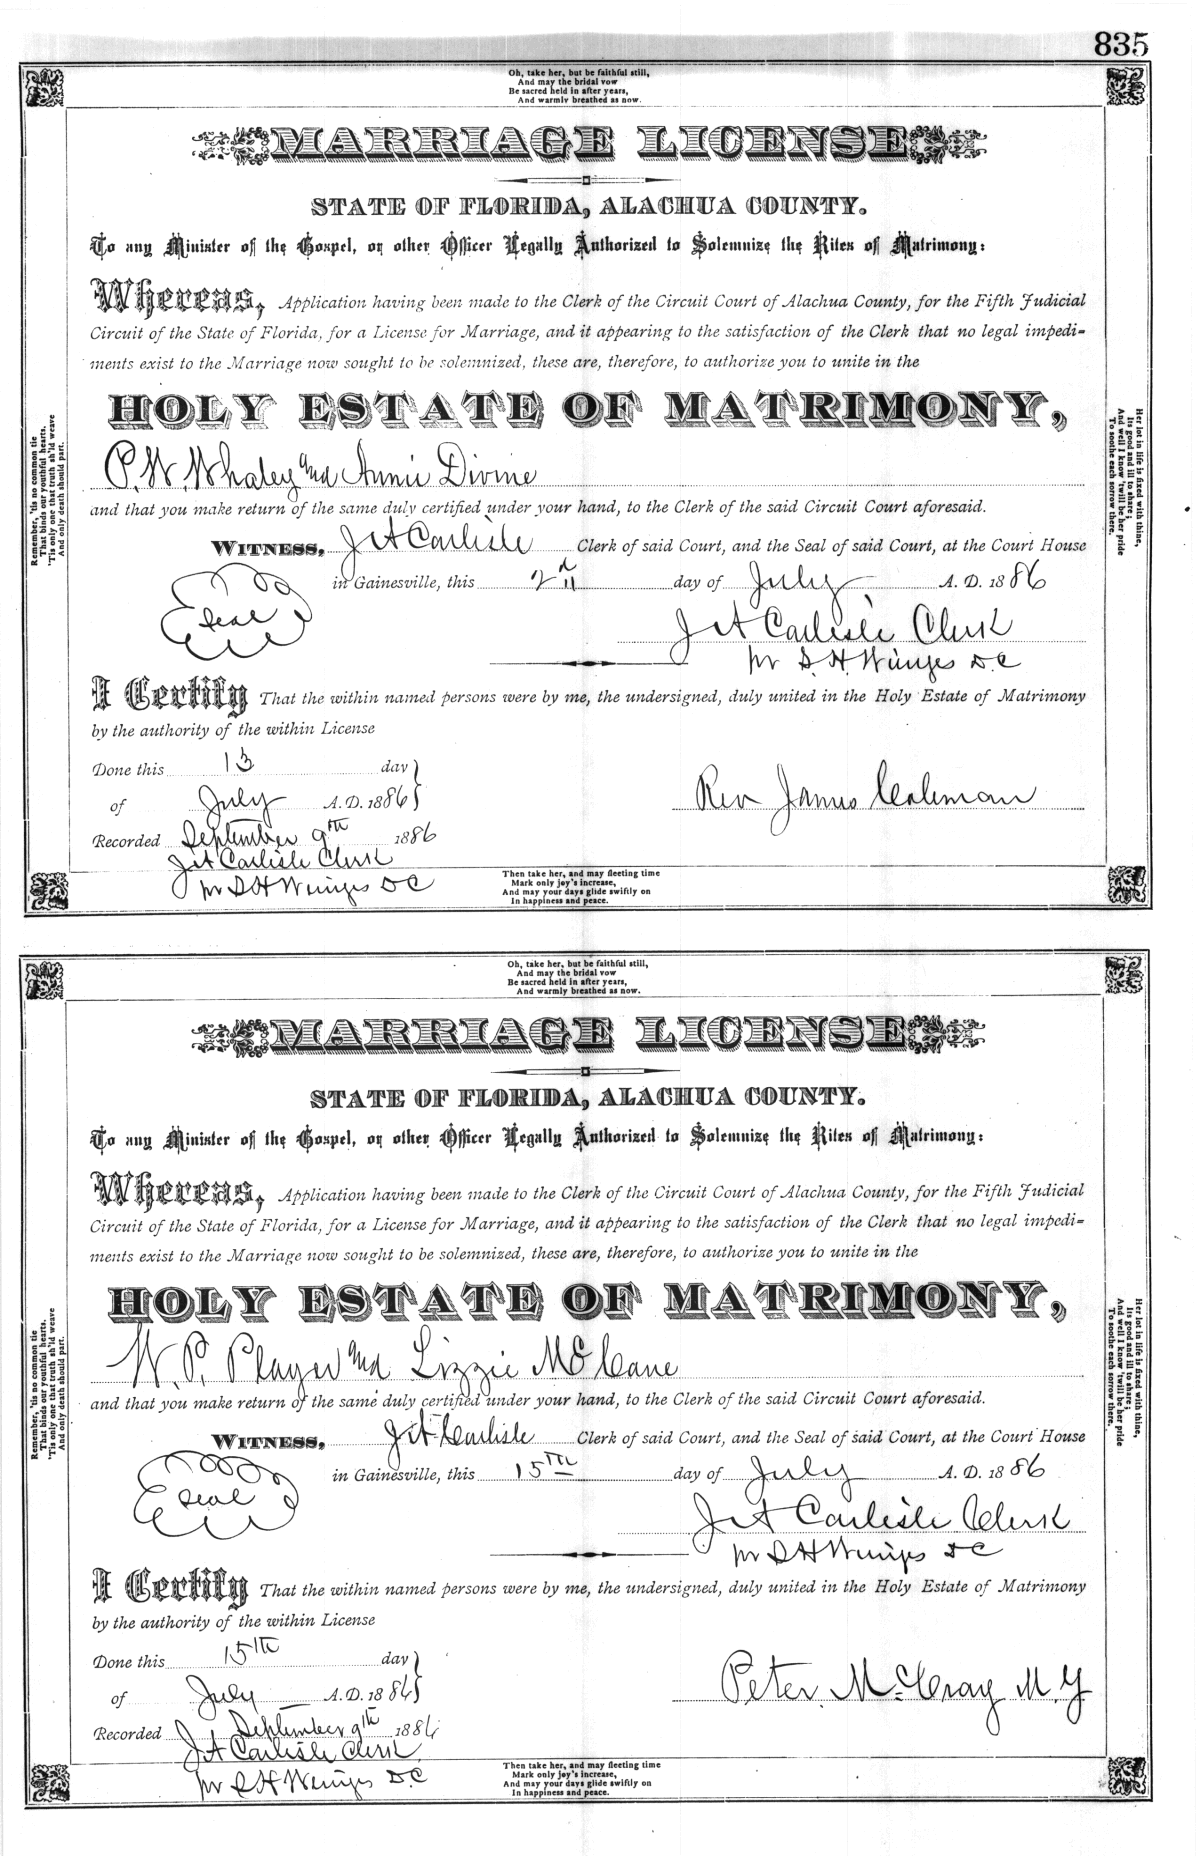 835
Oh, take her, but be faithful still,
And may the bridal vow
Be sacred held in after years,
And warmly breathed as now.
MARRIAGE LICENSE
STATE OF FLORIDA, ALACHUA COUNTY.
To any Minister of the Gospel, or other Officer Legally Authorized to Solemnize the Rites of Matrimony:
Whereas, Application having been made to the Clerk of the Circuit Court of Alachua County, for the Fifth Judicial
Circuit of the State of Florida, for a License for Marriage, and it appearing to the satisfaction of the Clerk that no legal impedi-
ments exist to the Marriage now sought to be solemnized, these are, therefore, to authorize you to unite in the
HOLY ESTATE OF MATRIMONY,
P. W. Whaley and Annie Divine
and that you make return of the same duly certified under your hand, to the Clerk of the said Circuit Court aforesaid.
WITNESS, J A Carlisle Clerk of said Court, and the Seal of said Court, at the Court House
in Gainesville, this 2nd day of July A. D. 1886
Seal
J A Carlisle Clerk
pr S. H. Wienges D.C
I Certify That the within named persons were by me, the undersigned, duly united in the Holy Estate of Matrimony
by the authority of the within License
Done this 13 day
of July A. D. 1886
Rev James Coleman
Recorded September 9th 1886
J A Carlisle Clerk
pr S H Wienges D C
Then take her, and may fleeting time
Mark only joy's increase,
And may your days glide swiftly on
In happiness and peace.
Remember, 'tis no common tie
That binds our youthful hearts,
'Tis only one that truth sh'ld weave
And only death should part.
Her lot in life is fixed with thine,
Its good and ill to share;
And well I know 'twill be her pride
To soothe each sorrow there.
Oh, take her, but be faithful still,
And may the bridal vow
Be sacred held in after years,
And warmly breathed as now.
MARRIAGE LICENSE
STATE OF FLORIDA, ALACHUA COUNTY.
To any Minister of the Gospel, or other Officer Legally Authorized to Solemnize the Rites of Matrimony:
Whereas, Application having been made to the Clerk of the Circuit Court of Alachua County, for the Fifth Judicial
Circuit of the State of Florida, for a License for Marriage, and it appearing to the satisfaction of the Clerk that no legal impedi-
ments exist to the Marriage now sought to be solemnized, these are, therefore, to authorize you to unite in the
HOLY ESTATE OF MATRIMONY,
W. P. Player and Lizzie McCane
and that you make return of the same duly certified under your hand, to the Clerk of the said Circuit Court aforesaid.
WITNESS, J A Carlisle Clerk of said Court, and the Seal of said Court, at the Court House
in Gainesville, this 15th day of July A. D. 1886
Seal
J A Carlisle Clerk
pr S H Wienges D C
I Certify That the within named persons were by me, the undersigned, duly united in the Holy Estate of Matrimony
by the authority of the within License
Done this 15th day
of July A. D. 1886
Peter McCray M. G
Recorded September 9th 1886
J A Carlisle Clerk
pr S H Wienges D.C
Then take her, and may fleeting time
Mark only joy's increase,
And may your days glide swiftly on
In happiness and peace.
Remember, 'tis no common tie
That binds our youthful hearts,
'Tis only one that truth sh'ld weave
And only death should part.
Her lot in life is fixed with thine,
Its good and ill to share;
And well I know 'twill be her pride
To soothe each sorrow there.